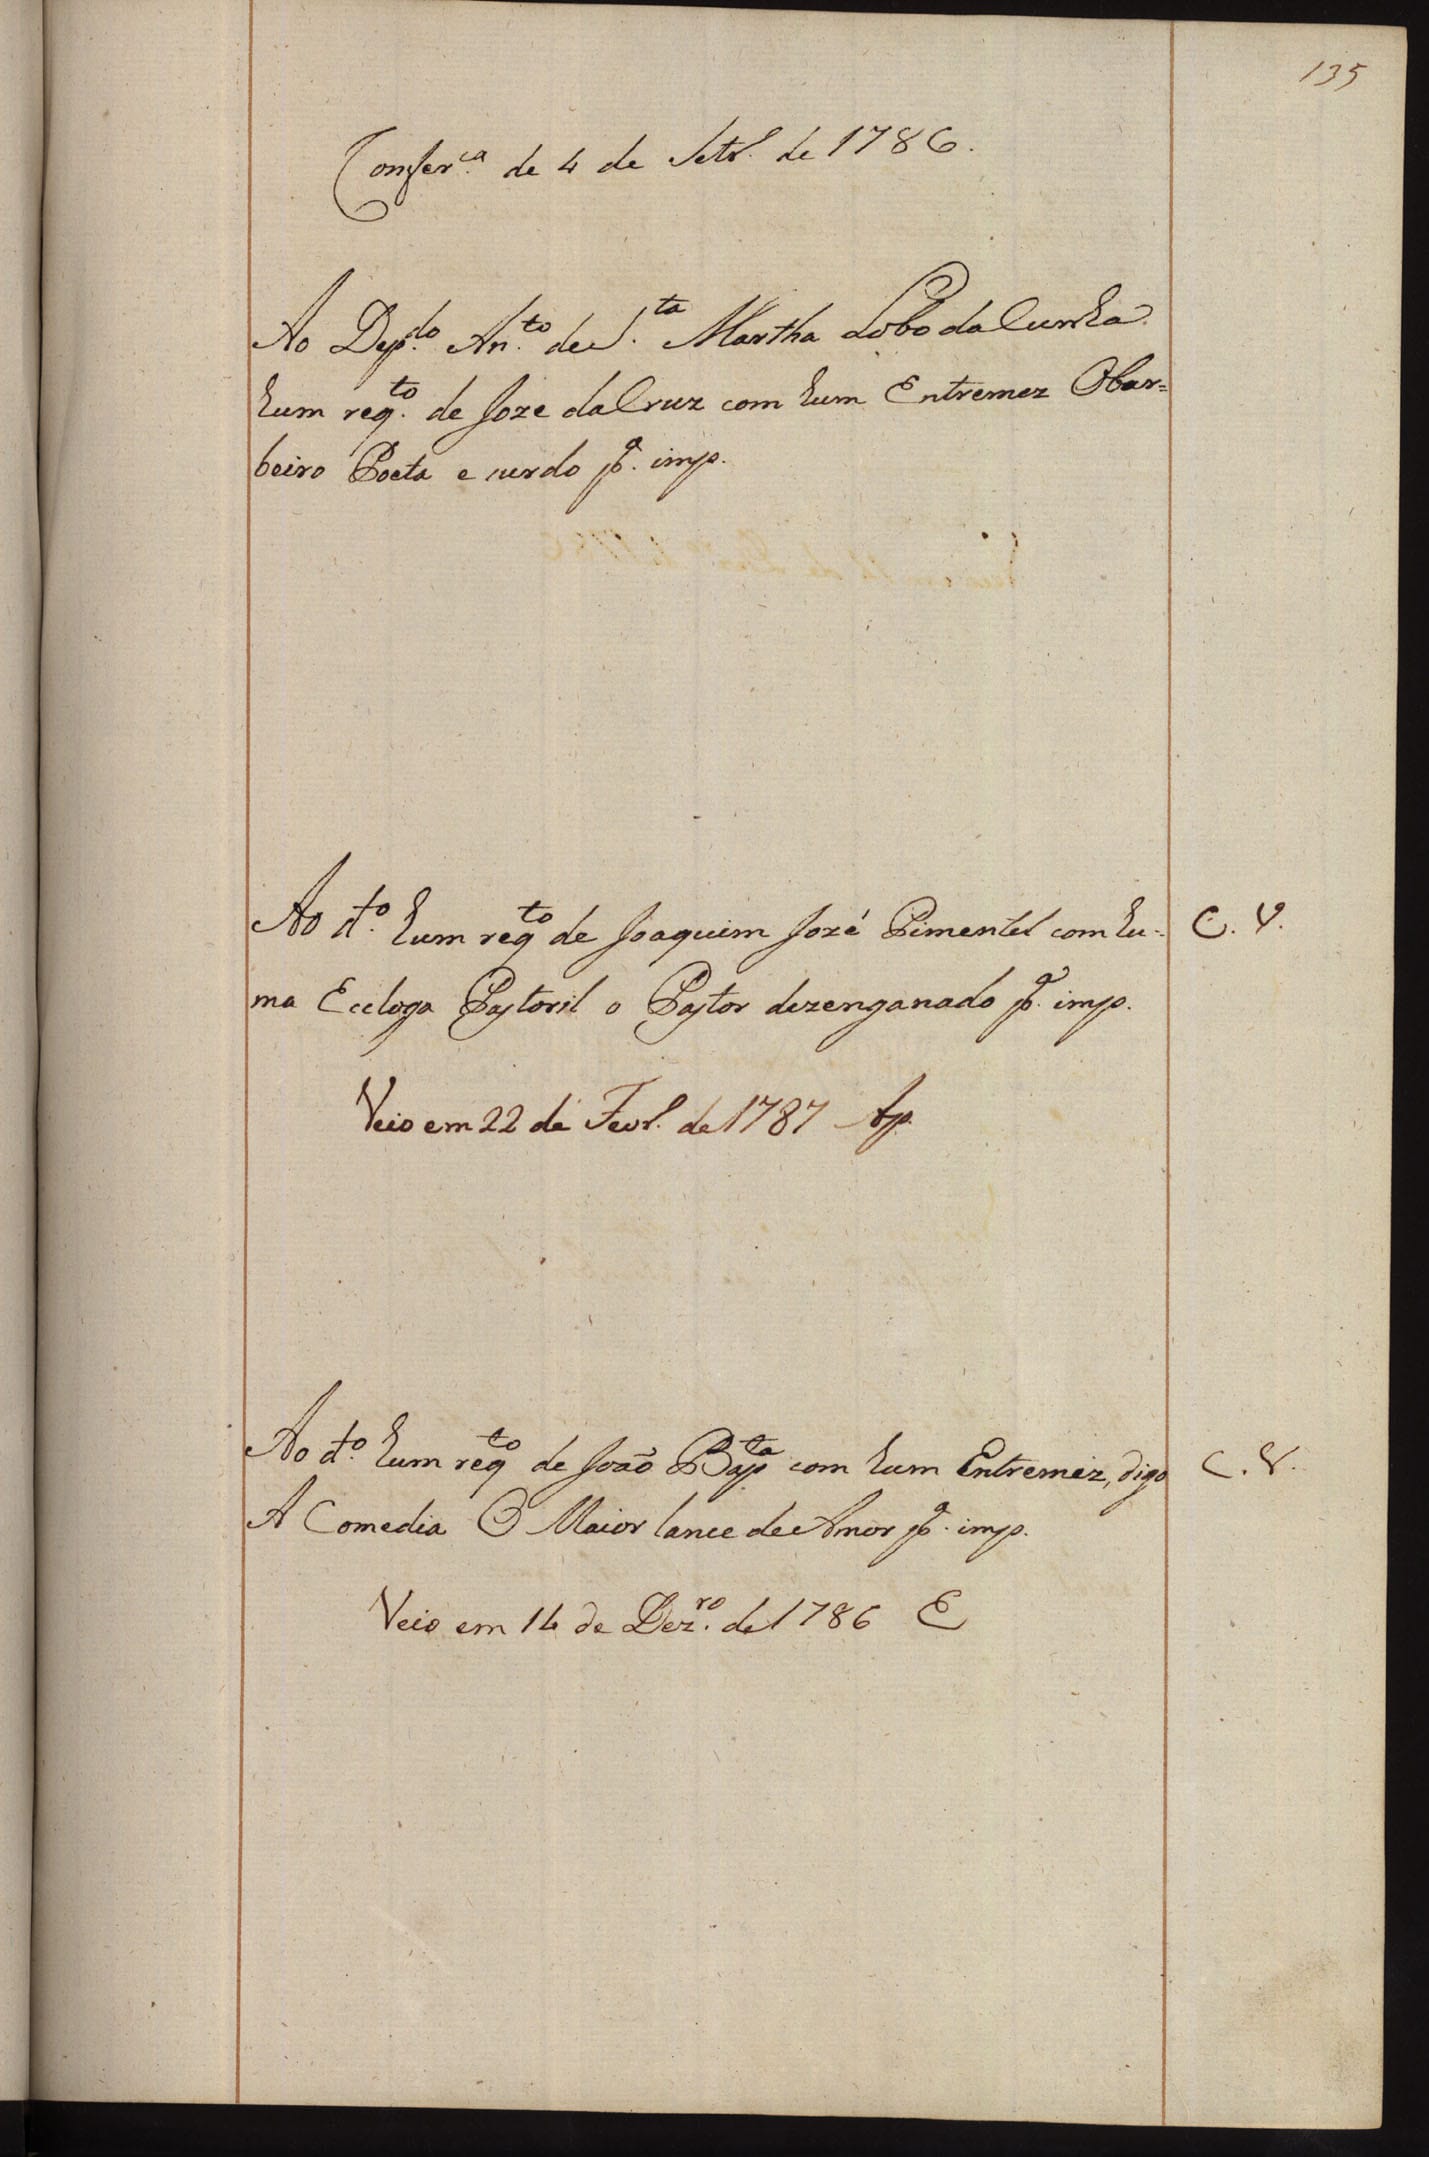 135
Confer.ca de 4 de Setr.o de 1786.
Ao Dep.do An.to de S.ta Martha Lobo da Cunha
hum req.to de Joze da Cruz com hum Entremez O bar=
beiro Poeta e surdo p.a imp.
Ao d.to hum reqto de Joaquim Jozé Pimentel com hu- C. V.
ma Ecloga Pastoril o Pastor dezenganado p.a imp.
Veio em 22 de Fevr.o de 1787 Ap.
Ao d.to hum reqto de João Bapta com hum Entremez, digo C. V.
A Comedia O Maior lance de Amor p.a imp.
Veio em 14 de Dez.ro de 1786 E